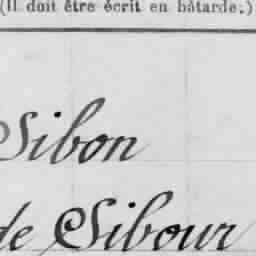 (Il doit être écrit en bâtarde.)
Sibon
de Sibour